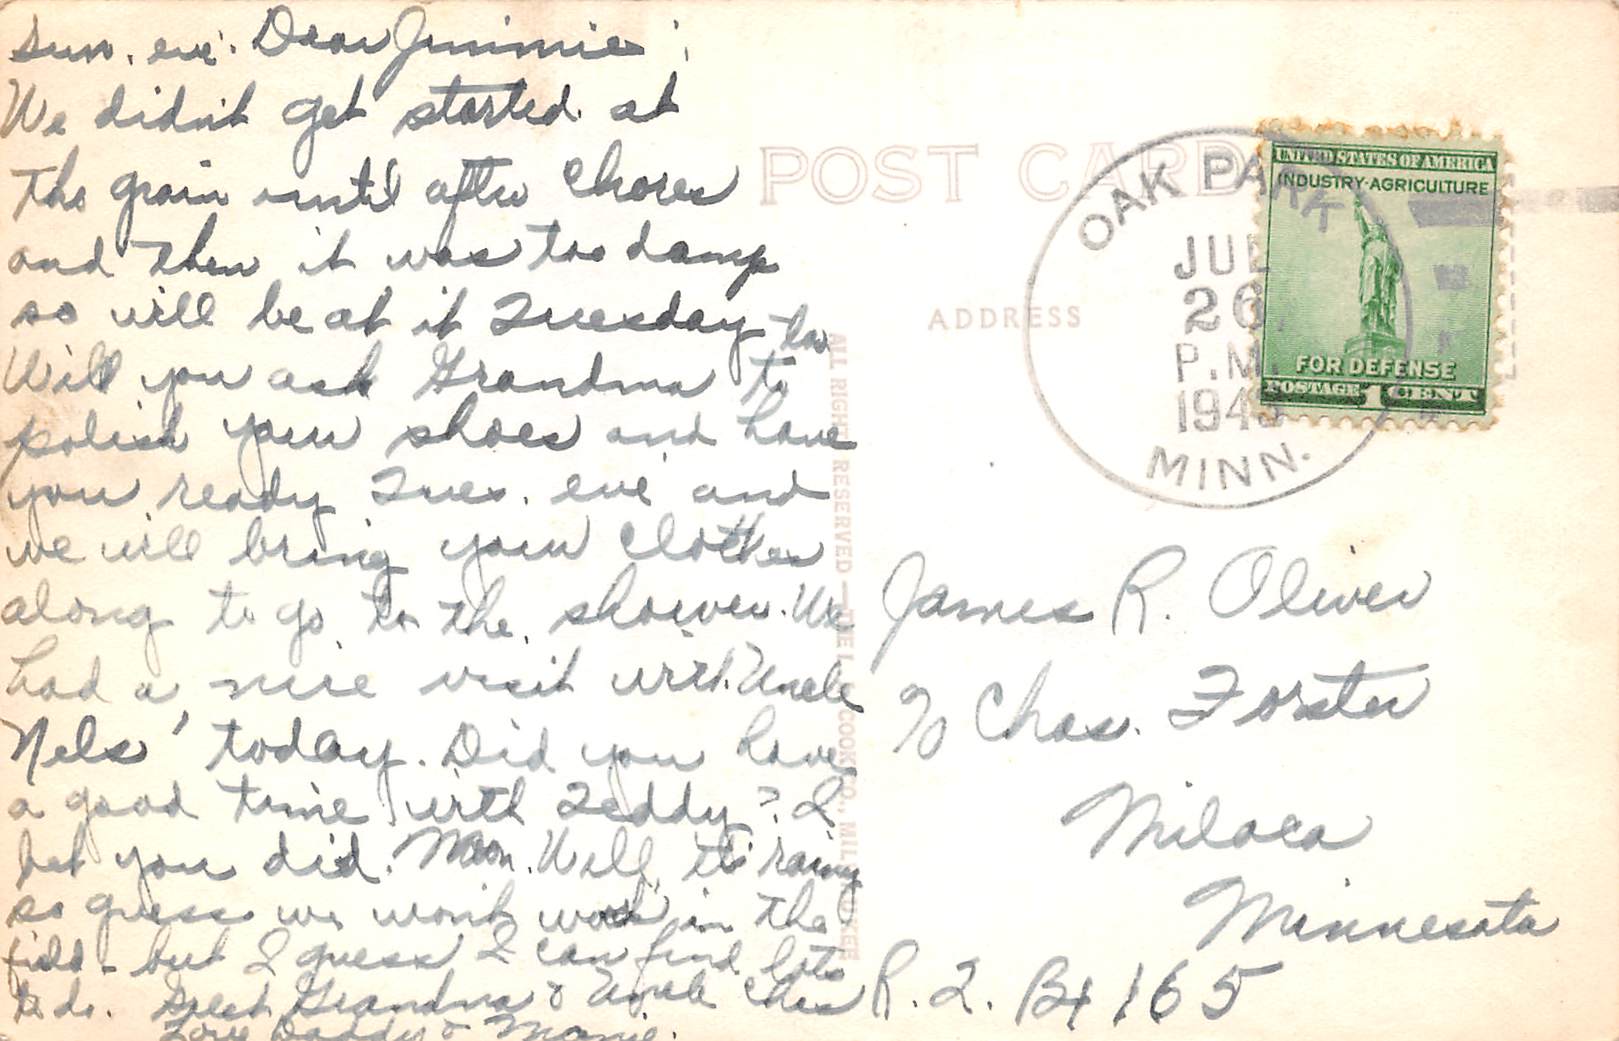 Sun. eve. Dear Jimmie;
We didn't get started at
the grain until after chores
and then it was too damp
so will be at it Tuesday
Will you ask Grandma to
polish your shoes and have
you ready Tues. eve and
we will bring your clothes
along to go to the shower. We
had a nice visit with Uncle
Nels' today. Did you have
a good time with Teddy? I
bet you did. Mon. Well its rainy
so guess we won't work in the
field - but I guess I can find lots
to do. Greet Grandma & Uncle Chas
Love Daddy & Momie.
POST CARD
ADDRESS
ALL RIGHTS RESERVED - THE L. L. COOK CO., MILWAUKEE
OAK PARK
JUL
26
P.M.
194
MINN.
UNITED STATES OF AMERICA
INDUSTRY-AGRICULTURE
FOR DEFENSE
POSTAGE 1 CENT
James R. Oliver
% Chas. Forster
Milaca
Minnesota
R. 2. Bx 165